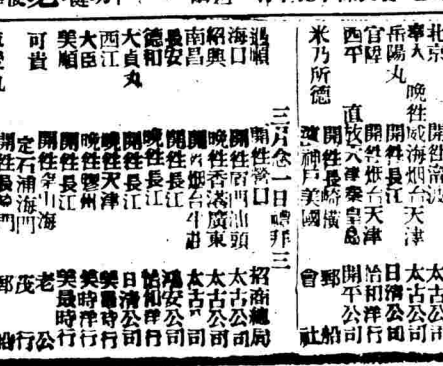 北京 開往甯波 太古公司
奉天 晚往威海烟台天津 太古公司
岳陽丸 開往長江 日清公司
官陞 開往烟台天津 怡和洋行
西平 直放天津秦皇島 開平公司
米乃所德 開往長崎橫 郵船
濱神戶美國 會社
三月念一日禮拜三
遇順 開往營口 招商總局
海口 開往厦門汕頭 太古公司
紹興 晚往香港廣東 太古公司
南昌 開往烟台牛莊 太古公司
長安 開往長江 鴻安公司
德和 晚往長江 怡和洋行
大貞丸 開往長江 日清公司
西江 晚往天津 美最時行
大臣 晚往膠州 美時洋行
美順 開往長江 美最時行
可貴 開往象山海 老公
定石浦海門 茂行
開往長崎門 郵船